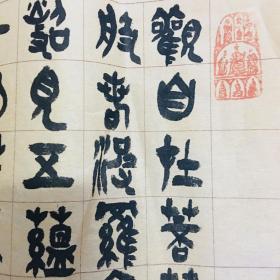 觀自在菩
般若波羅
照見五蘊